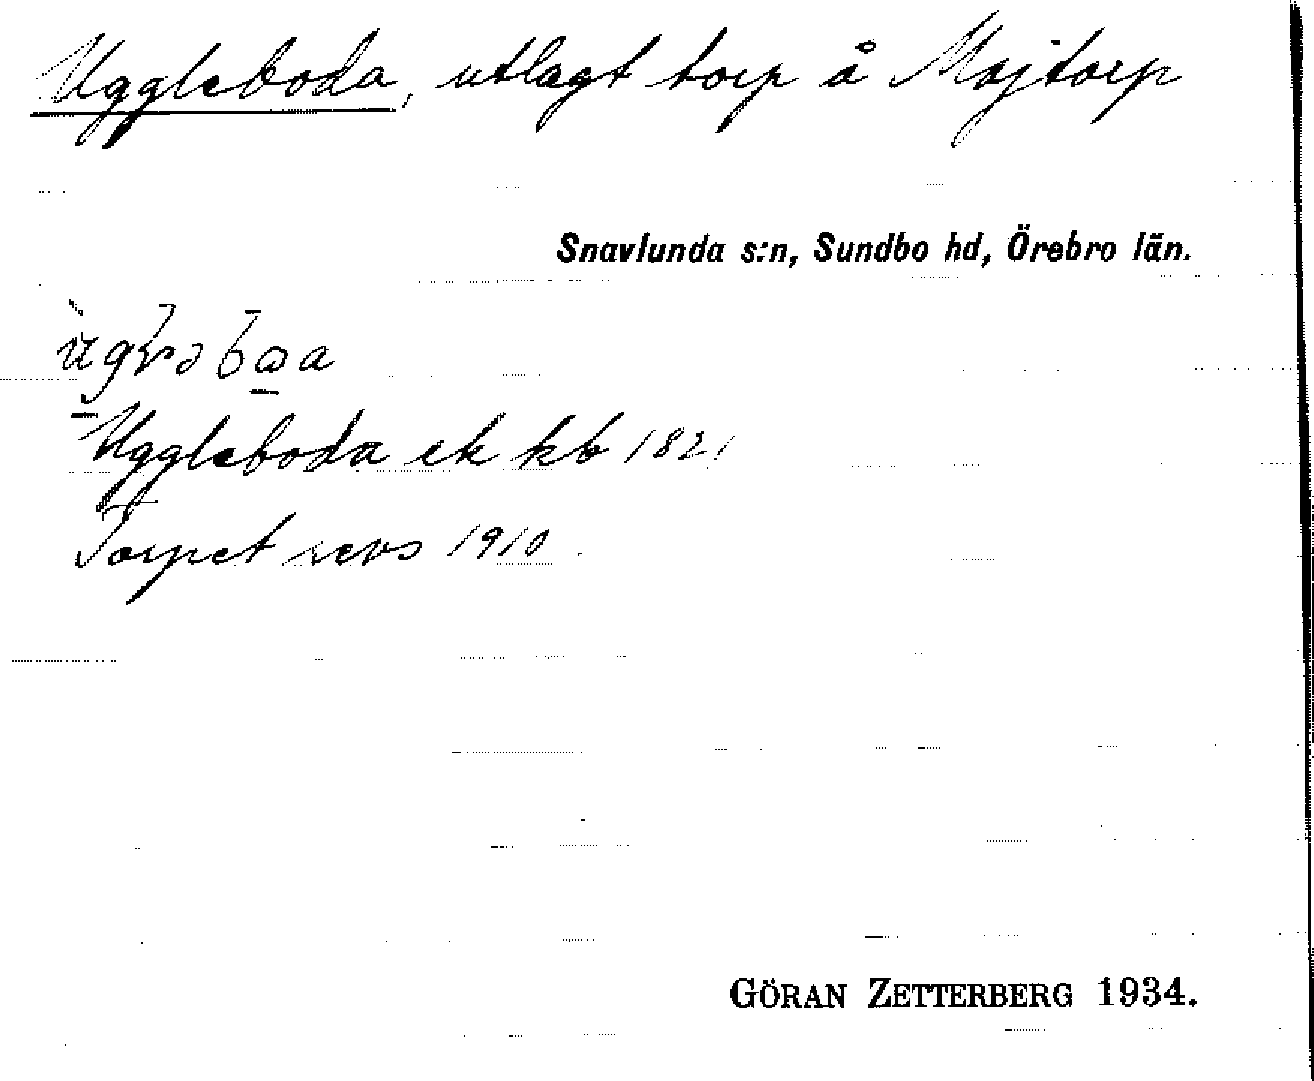 Uggleboda, utlagt torp å Majtorp
Snavlunda s:n, Sundbo hd, Örebro län.
Uggleboda ek kb 1821
Torpet revs 1910.
GÖRAN ZETTERBERG 1934.